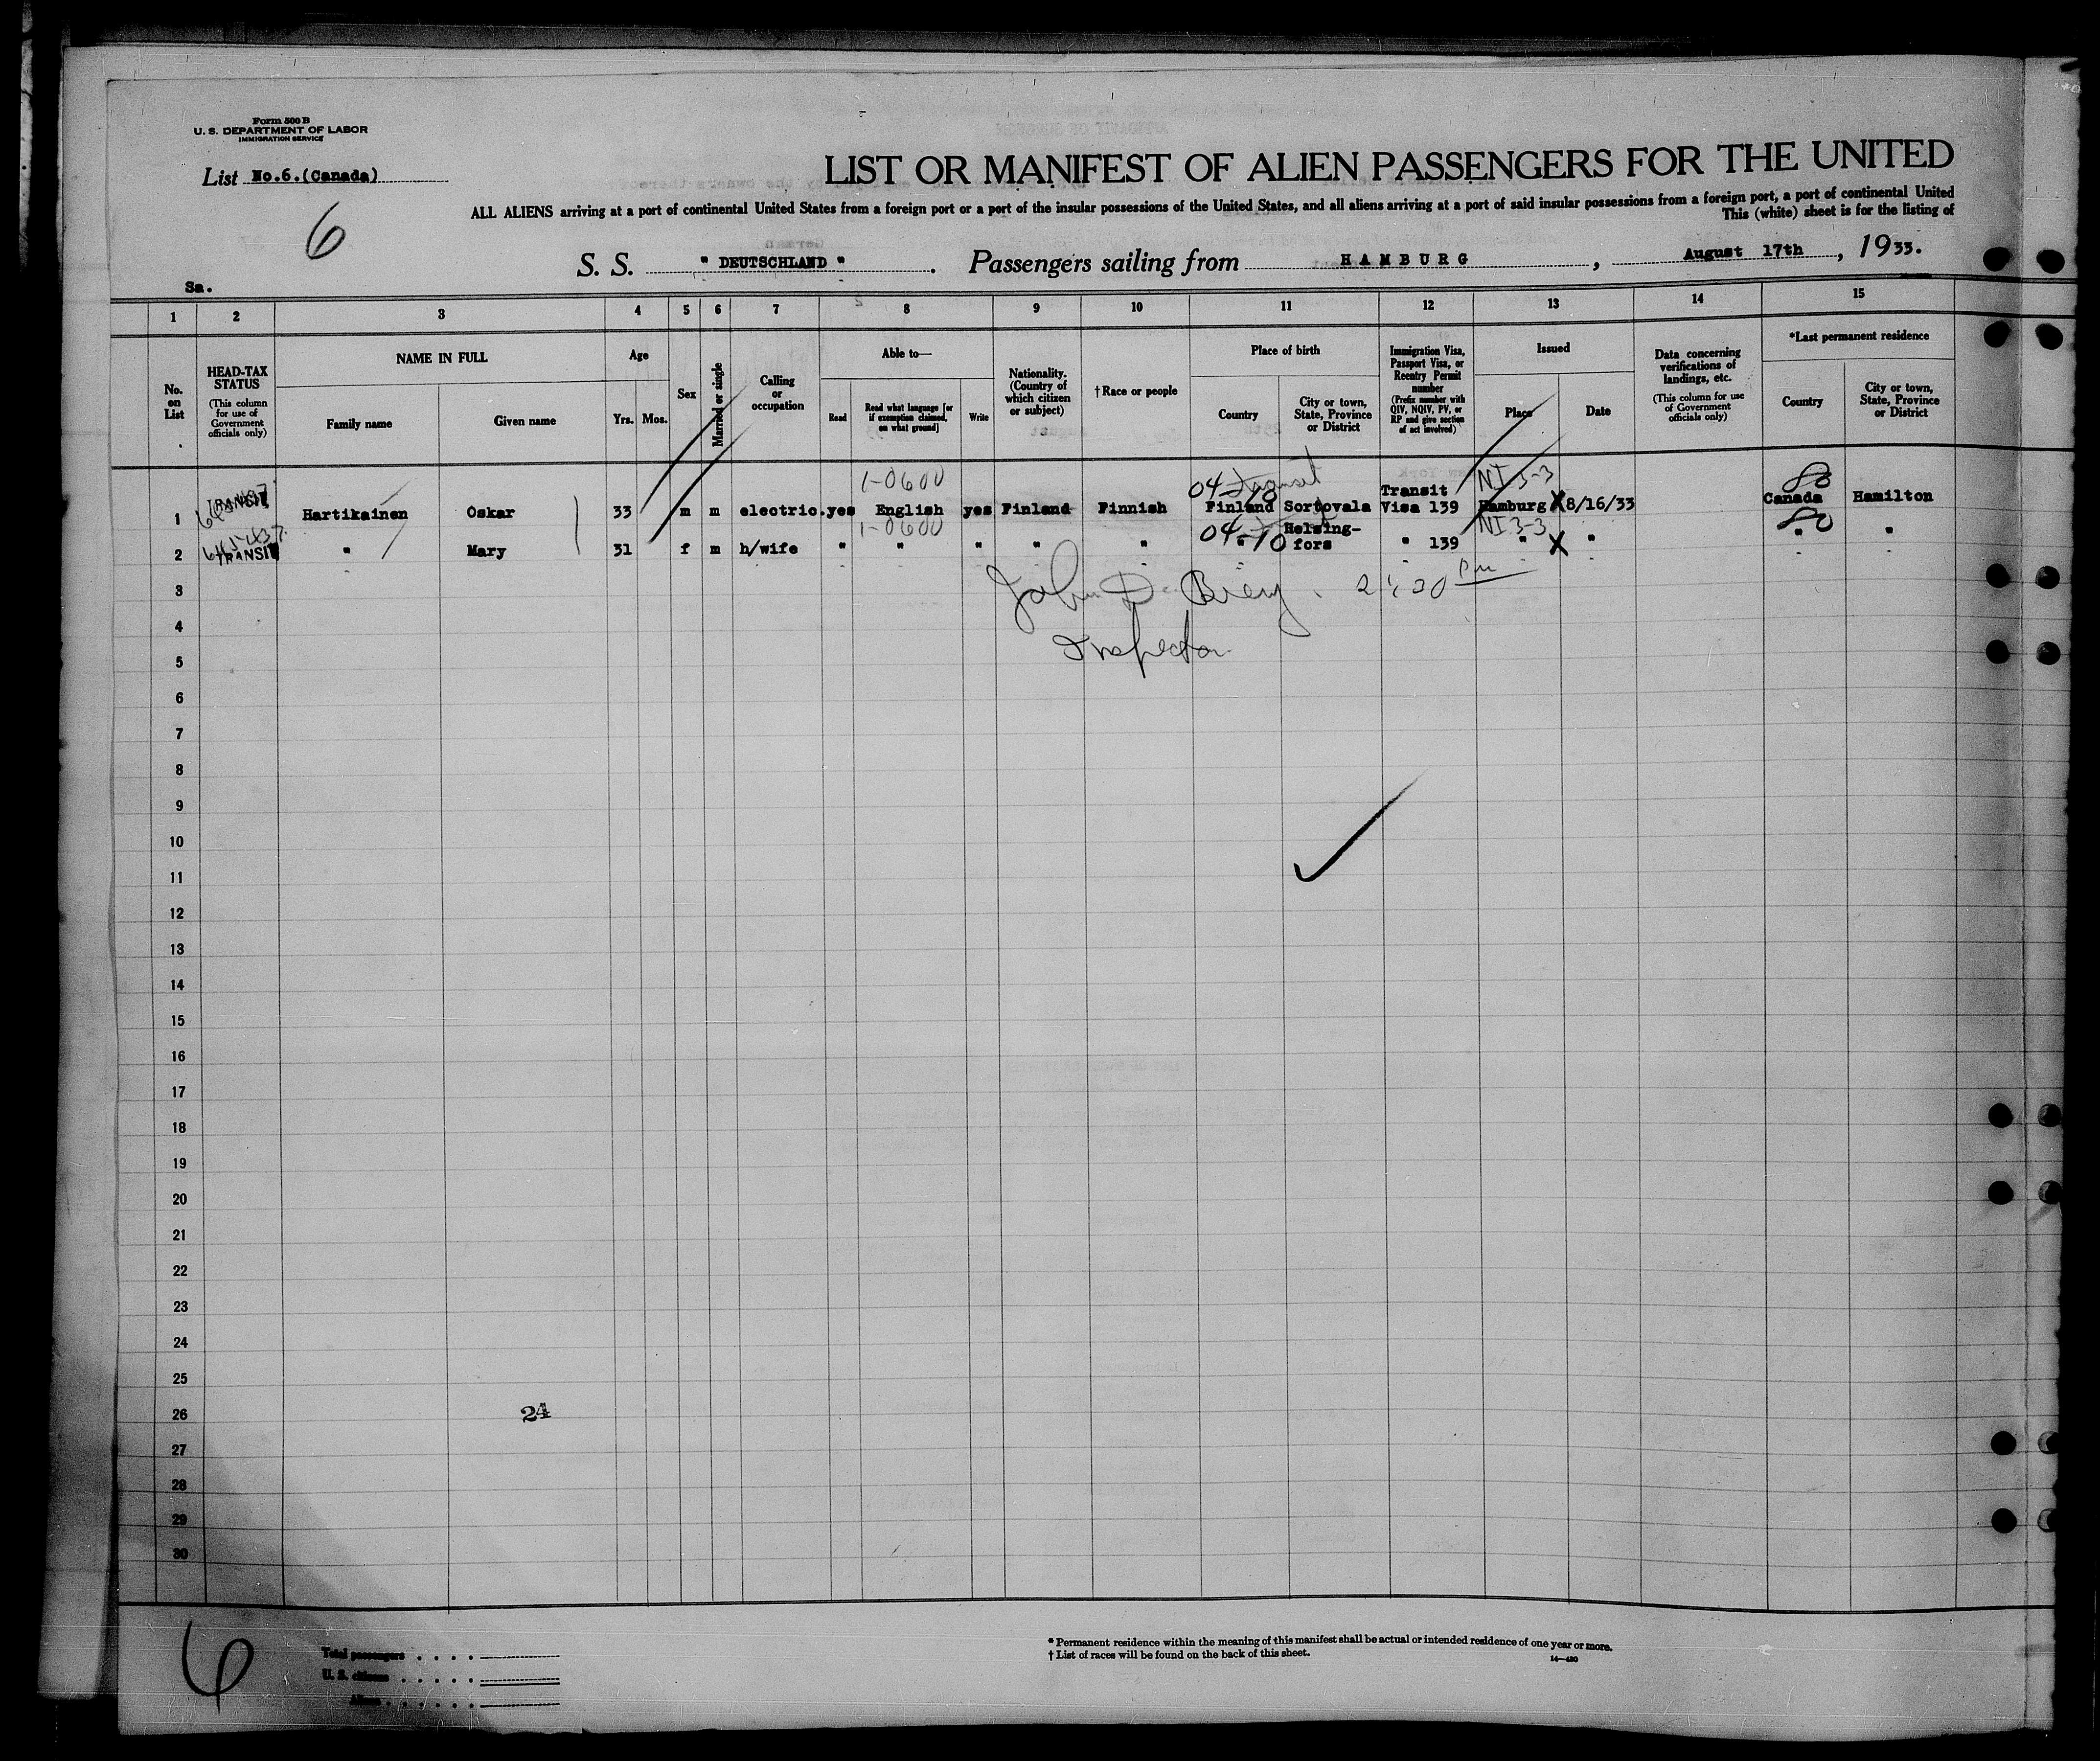 Form 500 B
U. S. DEPARTMENT OF LABOR
IMMIGRATION SERVICE
List No.6.(Canada)
6
LIST OR MANIFEST OF ALIEN PASSENGERS FOR THE UNITED
ALL ALIENS arriving at a port of continental United States from a foreign port or a port of the insular possessions of the United States, and all aliens arriving at a port of said insular possessions from a foreign port, a port of continental United
This (white) sheet is for the listing of
S. S. " DEUTSCHLAND " . Passengers sailing from HAMBURG , August 17th , 1933.
Sa.
1 2 3 4 5 6 7 8 9 10 11 12 13 14 15
No. on List
HEAD-TAX STATUS (This column for use of Government officials only)
NAME IN FULL
Family name Given name
Age
Yrs. Mos.
Sex
Married or single
Calling or occupation
Able to—
Read Read what language [or if exemption claimed, on what ground] Write
Nationality. (Country of which citizen or subject)
† Race or people
Place of birth
Country City or town, State, Province or District
Immigration Visa, Passport Visa, or Reentry Permit number (Prefix number with QIV, NQIV, PV, or RP and give section of act involved)
Issued
Place Date
Data concerning verifications of landings, etc. (This column for use of Government officials only)
*Last permanent residence
Country City or town, State, Province or District
1-0600 04-10 Transit NI 3-3 80
1 TRANSIT Hartikainen Oskar 33 m m electric. yes English yes Finland Finnish Finland Sortovala Transit Visa 139 Hamburg X 8/16/33 Canada Hamilton
1-0600 04-10 NI 3-3 80
2 TRANSIT " Mary 31 f m h/wife " " " " " " Helsing-fors " 139 " X " " "
3 John D. 2:20 PM
4
Inspector
5
6
7
8
9
10
11
12
13
14
15
16
17
18
19
20
21
22
23
24
25
26 24
27
28
29
30
6
Total passengers
U. S. citizens
Aliens
* Permanent residence within the meaning of this manifest shall be actual or intended residence of one year or more.
† List of races will be found on the back of this sheet.
14—430